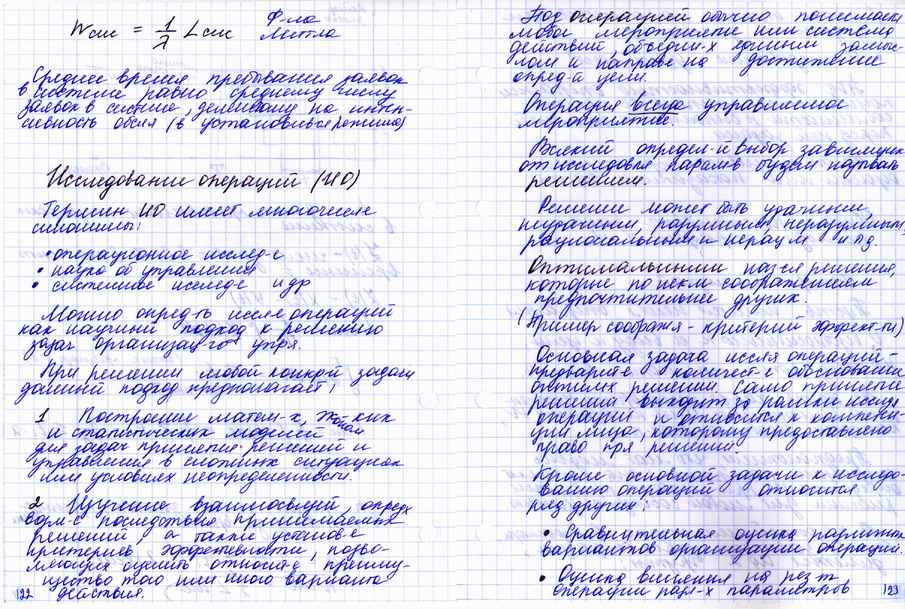 Wсис = 1/λ Lсис Ф-ла
Литтла
Среднее время пребывания заявок
в системе равно среднему числу
заявок в системе, деленному на интен-
сивность
Исследование операций (ИО)
Термин ИО имеет
синонимы:
• операционное исслед-е
• наука об управлении
• системное исслед-е и др
Можно опред-ть иссл-е операций
как научный подход к решению
задач организац-го упр-я.
При решении любой конкр-й задачи
данный подход предполагает:
1 Построение матем-х,
и статистических моделей
для задач принятия решений и
управления в сложных ситуациях
или условиях неопределенности.
2 Изучение взаимосвязей,
последствия принимаемых
решений, а также установ-е
критериев эффективности, позво-
ляющих оценить преиму-
щество того или иного варианта
действия.
122
Под операцией обычно понимаем
любое мероприятие или систему
действий, объедин-х единым замыс-
лом и направ-е на достижение
опред-й цели.
Операция всегда управляемое
мероприятие.
Всякий определ-й выбор зависящих
от парам-в будем называть
решением.
Решение может быть удачным,
неудачным, разумным, неразумным,
рациональным и нерац-м и т.д.
Оптимальными наз-ся решения,
которые по неким соображениям
предпочтительнее других.
(Пример соображ-я - критерий эффект-ти)
Основная задача иссл-я операций -
количест-е обоснование
решений. Само принятие
решения выходит за рамки иссл-я
операций и относится к компетен-
ции лица, которому предоставлено
право решения.
Кроме основной задачи к исследо-
ванию операций относится
ряд других:
• Сравнительная оценка различных
вариантов организации операций.
• Оценка влияния на рез-т
операции разл-х параметров
123